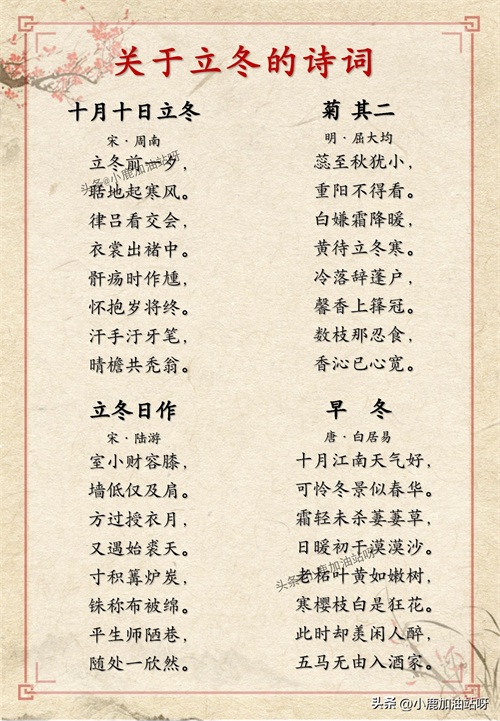 关于立冬的诗词
十月十日立冬
宋·周南
立冬前一岁，
聒地起寒风。
律吕看交会，
衣裳出褚中。
骭疡时作尰，
怀抱岁将终。
汗手汙牙笔，
晴檐共秃翁。
菊 其二
明·屈大均
蕊至秋犹小，
重阳不得看。
白嫌霜降暖，
黄待立冬寒。
冷落辞蓬户，
馨香上箨冠。
数枝那忍食，
香沁已心宽。
立冬日作
宋·陆游
室小财容膝，
墙低仅及肩。
方过授衣月，
又遇始裘天。
寸积篝炉炭，
铢称布被绵。
平生师陋巷，
随处一欣然。
早 冬
唐·白居易
十月江南天气好，
可怜冬景似春华。
霜轻未杀萋萋草，
日暖初干漠漠沙。
老柘叶黄如嫩树，
寒樱枝白是狂花。
此时却羡闲人醉，
五马无由入酒家。
头条@小鹿加油站呀
头条@小鹿加油站呀
头条 @小鹿加油站呀